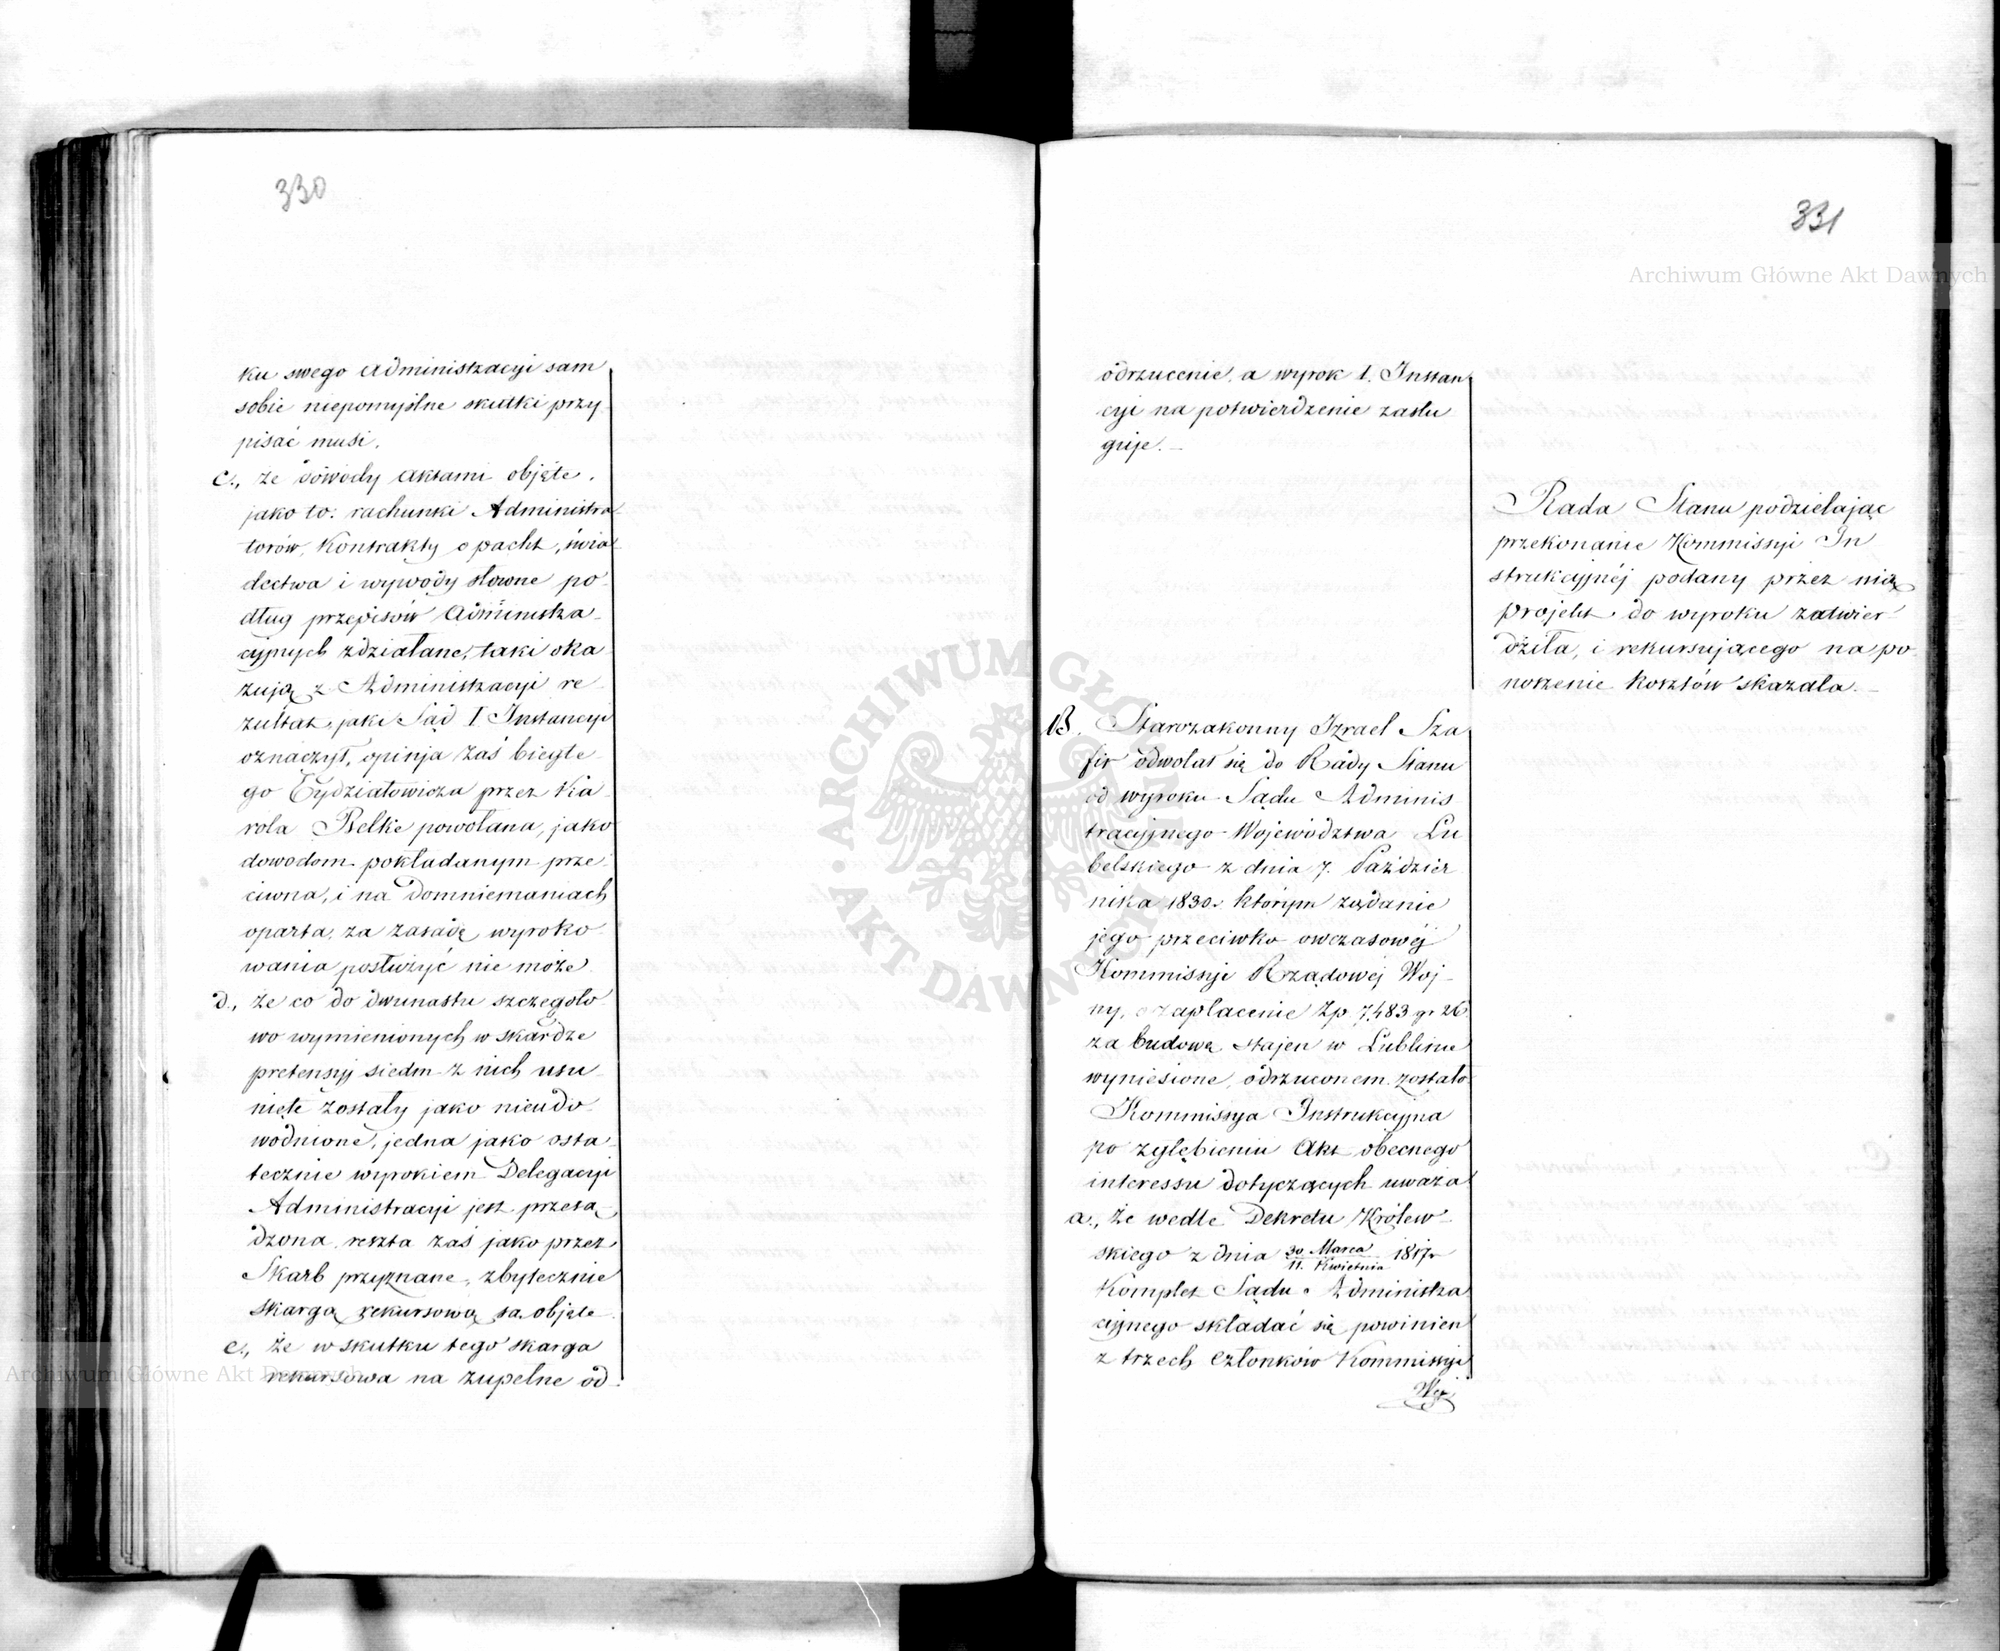 330
ku swego Administracyi sam
sobie niepomyślne skutki przy
pisać musi.
c., że dowody aktami objęte,
jako to: rachunki Administra
torów, Kontrakty o pacht, świa
dectwa i wywody słowne po-
dług przepisów Administra-
cyjnych zdziałane, taki oka
zują z Administracyi re-
zultat, jaki Sąd I Instancyi
oznaczył, opinja zaś biegłe-
go przez Ka-
rola Belke powołana, jako
dowodom pokładanym prze-
ciwna, i na domniemaniach
oparta, za zasadę wyroko-
wania posłużyć nie może.
d., że co do dwunastu szczegóło-
wo wymienionych w skardze
pretensyj siedm z nich usu-
nięte zostały jako nieudo-
wodnione, jedna jako osta-
tecznie wyrokiem Delegacyi
Administracyi jest przesą-
dzona, reszta zaś jako przez
Skarb przyznane, zbytecznie
skargą rekursową są objęte.
e., że w skutku tego skarga
rekursowa na zupełne od-
331
odrzucenie, a wyrok 1. Instan
cyi na potwierdzenie zasłu
guje.-
Rada Stanu podzielając
przekonanie Kommissyi In
strukcyjnéj podany przez nią
projekt do wyroku zatwier-
dziła, i rekursującego na po-
noszenie kosztów skazała.-
B. Starozakonny Izrael Sza
fir odwołał się do Rady Stanu
od wyroku Sądu Adminis
tracyjnego Województwa Lu
belskiego z dnia 7. Paździer
nika 1830 r. którym żądanie
jego przeciwko owczasowéj
Kommissyi Rządowéj Woj-
ny, o zapłacenie Zp 7,483 gr 26.
za budowę stajen w Lublinie
wyniesione, odrzuconem zostało.
Kommissya Instrukcyjna
po zgłębieniu Akt obecnego
interessu dotyczących uważa:
a., że wedle Dekretu Królew-
skiego z dnia 30 Marca / 11. Kwietnia 1817 r
Komplet Sądu Administra
cyjnego składać się powinien
z trzech Członków Kommissyi
Archiwum Główne Akt Dawnych
Archiwum Główne Akt Dawnych
ARCHIWUM GŁÓWNE AKT DAWNYCH